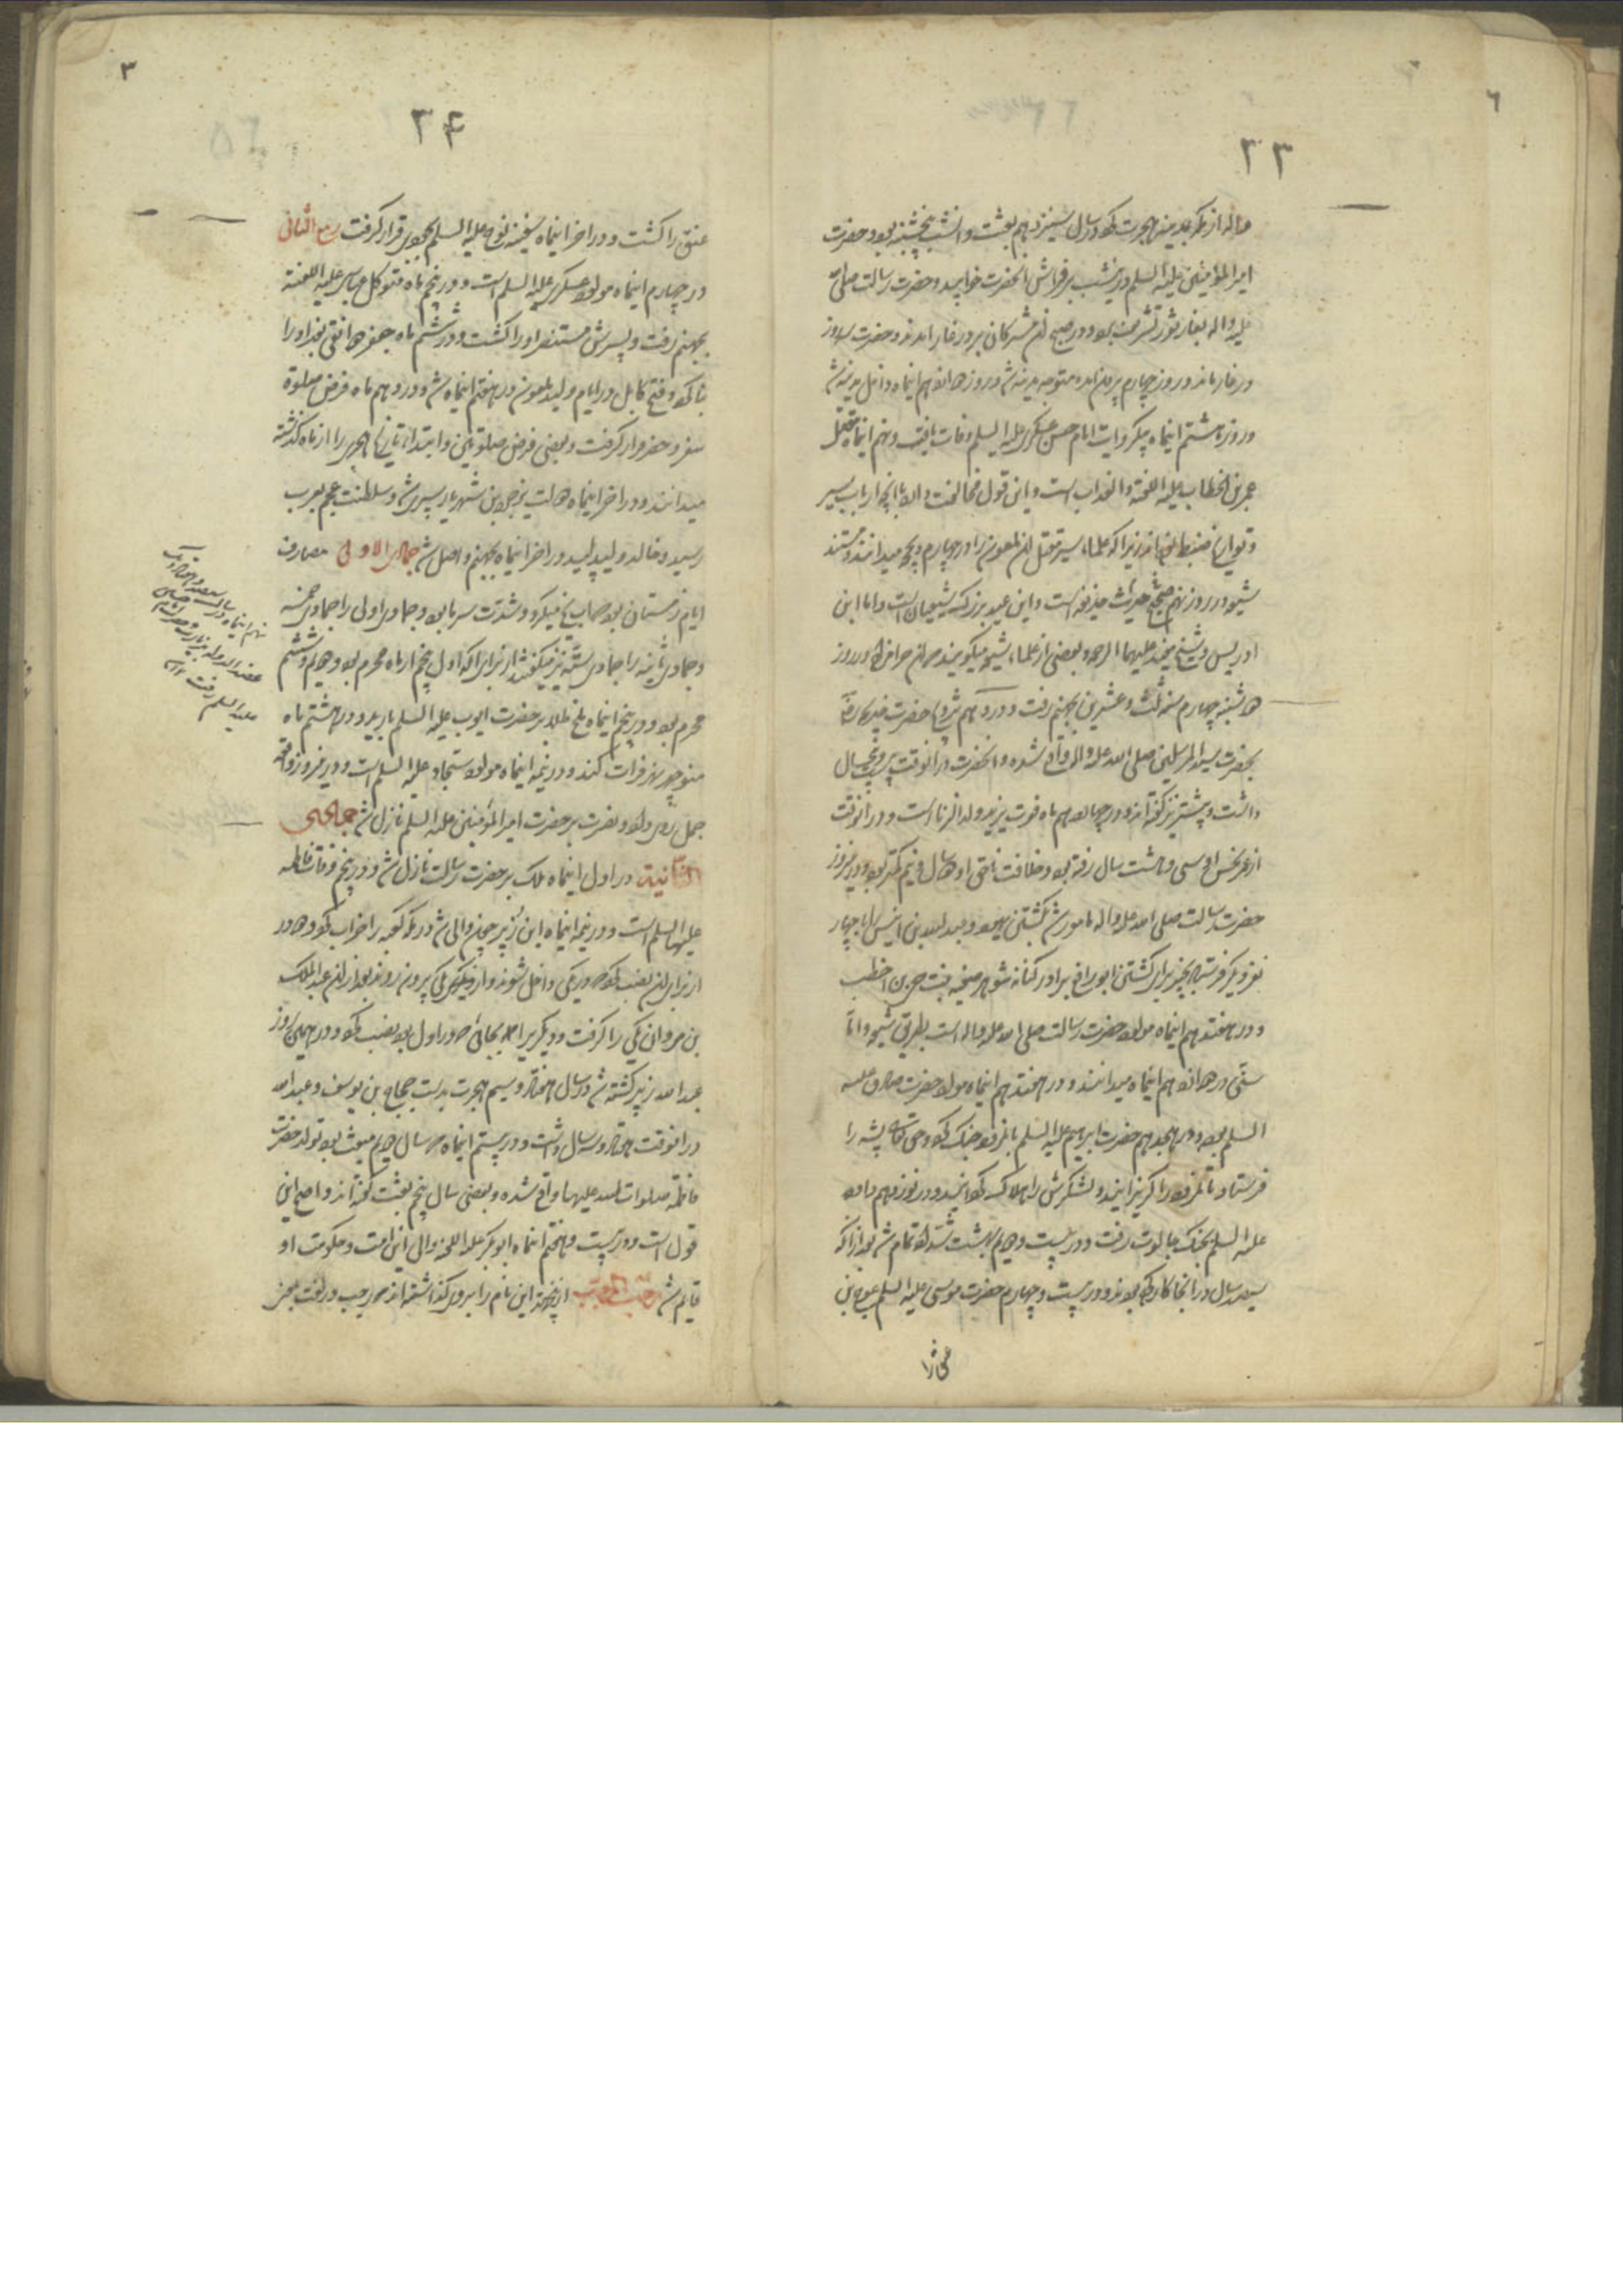 ٦
٢٣
واله از مکه بمدینه هجرت کرد در سال سیزدهم بعثت و آنشب پنجشنبه بود و حضرت
امیرالمؤمنین علیه السلم در آنشب بر فراش آنحضرت خوابید و حضرت رسالت صلی
علیه واله بغار ثور تشریف برد و در صبح آن مشرکان بر در غار آمدند و حضرت سه روز
در غار ماند و روز چهارم بیرون آمده متوجه مدینه شد و روز دوازدهم اینماه داخل مدینه شد
و روز هشتم اینماه بیک روایت امام حسن عسکری علیه السلم وفات یافت و نهم اینماه مقتل
عمر بن الخطاب علیه اللعنة والعذاب است و این قول مخالفت دارد با آنچه ارباب سیر
و تواریخ ضبط کرده اند زیرا که علماء سیر مقتل آن ملعون را در چهارم ذیحجه میدانند و مستند
شیعه در روز نهم صحیح حدیث حذیفه است و این عید بزرگ شیعیان است و اما ابن
ادریس و شیخ مفید علیهما الرحمه و بعضی از علماء شیعه میگویند عمر از حرافزاده در روز
دوشنبه چهارم سنه ثلث و عشرین بجهنم رفت و در دهم تزویج حضرت خدیجه رض
بحضرت سید المرسلین صلی الله علیه واله واقع شده و آنحضرت در آنوقت بیست و پنج سال
داشت و بیشتر نیز گفته اند و در چهاردهم ماه فوت یزید ولد الزنا است و در آنوقت
از عمر نحس او سی و هشت سال رفته بود و خلافت ناحق او دو سال و نیم کمتر بود و در نیروز
حضرت رسالت صلی الله علیه واله مامور شد بکشتن یهود و عبدالله بن انیس را با چهار
نفر دیگر فرستاد بخیبر برای کشتن ابو رافع برادر کنانه شوهر صفیه بنت حی بن اخطب
و در هفتدهم اینماه مولود حضرت رسالت صلی الله علیه واله است بطریق شیعه و اما
سنی در دوازدهم اینماه میدانند و در هفتدهم اینماه مولود حضرت صادق علیه
السلم بود و در هجدهم حضرت ابراهیم علیه السلم با نمرود جنگ کرد و حق تعالی پشه را
فرستاد تا نمرود را گریزانید و لشکرش را هلاک گردانید و در نوزدهم داود
علیه السلم بجنگ جالوت رفت و در بیست و دویم بهشت شداد تمام شد بعد از آنکه
سیصد سال در آنجا کار کرده بودند و در بیست و چهارم حضرت موسی علیه السلم عوج بن
٣
٢۴
عنق را کشت و در اخر اینماه سفینه نوح علیه السلم بجودی قرار گرفت ربیع الثانی
در چهارم اینماه مولود عسکری علیه السلم است و در پنجم ماه متوکل عباسی علیه اللعنة
بجهنم رفت و پسرش مستنصر او را کشت و در ششم ماه جعفر دوانقی بغداد را
بنا کرد و فتح کابل در ایام ولید ملعون در هفتم اینماه شد و در دهم ماه فرض صلوة
سفر و حضر قرار گرفت و بعضی فرض صلوتین و ابتدای تاریخ هجری را از ماه گذشته
میدانند و در اخر اینماه دولت یزدجرد بن شهریار سپری شد و سلطنت عجم بعرب
رسید و خالد ولید پلید در اخر اینماه بجهنم واصل شد جمادی الاولی مصارف
ایام زمستان بود حساب میکرد و شدت سرما بود و جمادی اولی را جمادی خمسه
و جمادی ثانیه را جمادی سته نیز میگفتند از برای آنکه اول پنجم از ماه محرم بود و دویم ششم
محرم بود و در پنجم اینماه ملخ طلا بر حضرت ایوب علیه السلم بارید و در هشتم ماه
منوچهر نهر فرات کند و در نیمه اینماه مولود سجاد علیه السلم است و در نیروز واقعه
جمل روی داد و نصرت بر حضرت امیرالمؤمنین علیه السلم نازل شد جمادی
الثانیه در اول اینماه ملک بر حضرت رسالت نازل شد و در پنجم وفات فاطمه
علیها السلم است و در نیمه اینماه ابن زبیر چون والی شد در مکه کعبه را خراب کرد و دو در
از برای آن نصب کرد که از در یکی داخل شوند و از دیگری بیرون روند بعد از آن عبدالملک
بن مروان یکی را گرفت و دیگریرا بجائی که در اول بود نصب کرد و در همین روز
عبدالله زبیر کشته شد در سال هفتاد و سیم هجرت بدست حجاج بن یوسف و عبدالله
در آنوقت هفتاد و سه سال داشت و در بیستم اینماه در سال دویم مبعث بود تولد حضرت
فاطمه صلوات الله علیها واقع شده و بعضی سال پنجم بعثت گفته اند و اصح این
قول است و در بیست و هفتم اینماه ابوبکر علیه اللعنه والی این امت و حکومت او
قایم شد رجب المرجب از جهة این نام را بروی گذاشته اند که رجب در لغت بمعنی
نهم اینماه در سال سیصد و هفتاد و یک
عضدالدوله بزیارت
علیه السلم رفت